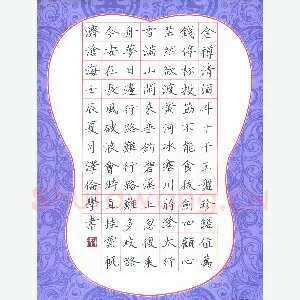 金樽清酒斗十千玉盤珍羞值萬
錢停杯投箸不能食拔劍四顧心
茫然欲渡黃河冰塞川將登太行
雪滿山閑來垂釣碧溪上忽復乘
舟夢日邊行路難行路難多歧路
今安在長風破浪會時直挂雲帆
濟滄海壬辰夏月澤倫學書